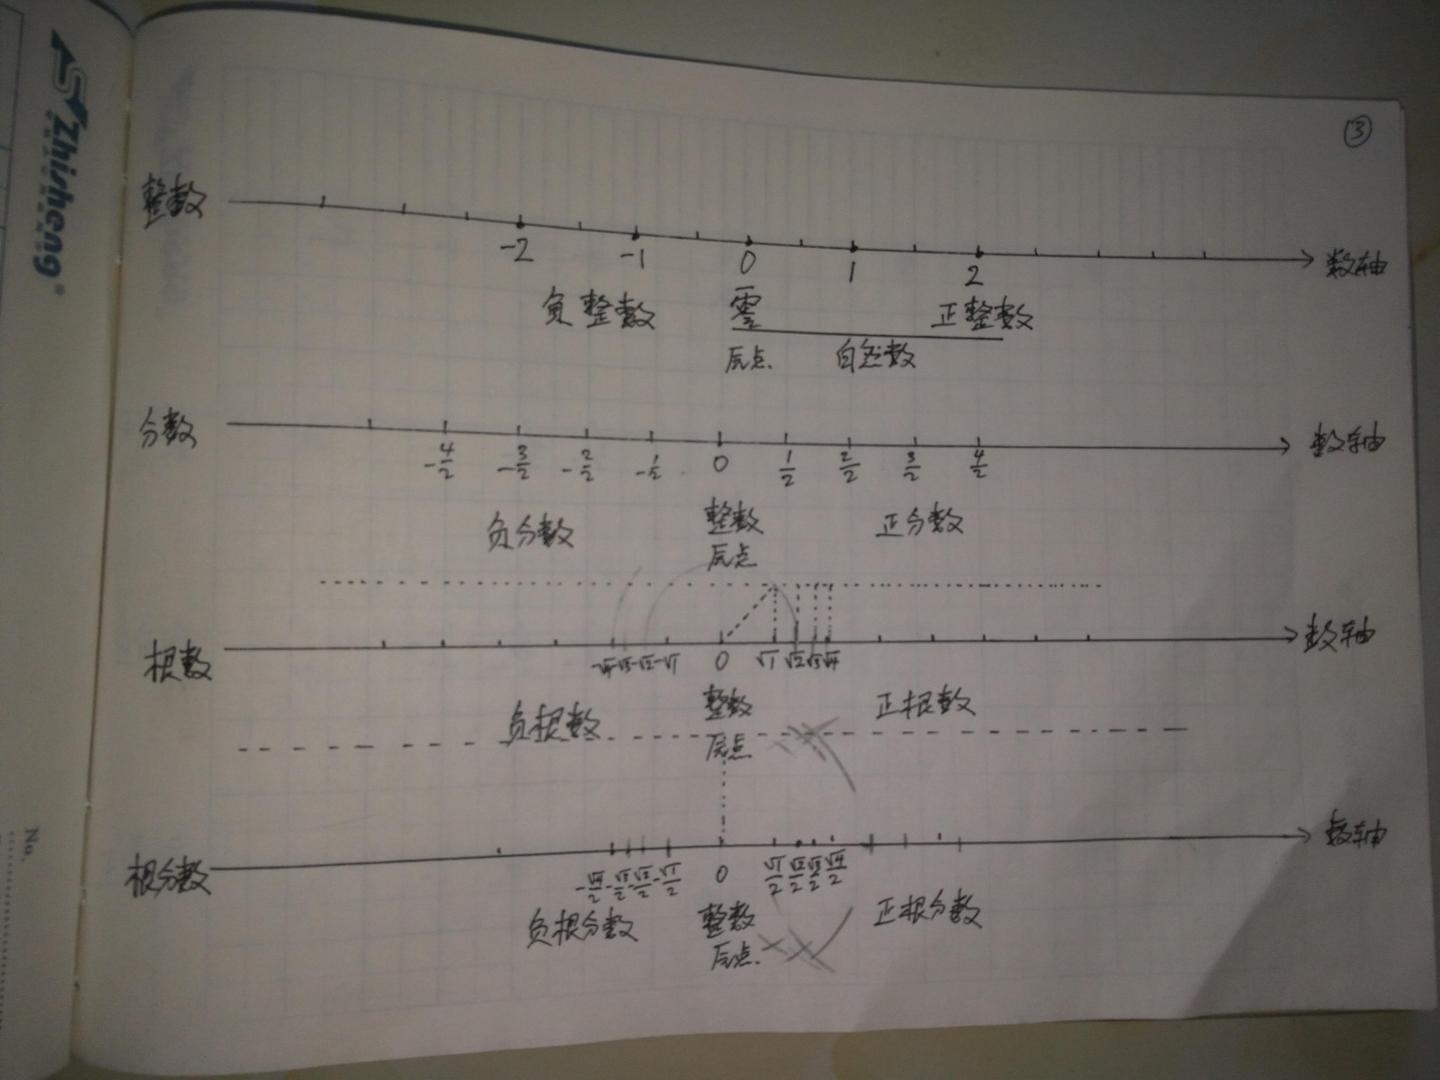 ③
Zhisheng
整数
数轴
-2 -1 0 1 2
负整数 零 正整数
原点. 自然数
分数
数轴
-4/2 -3/2 -2/2 -1/2 0 1/2 2/2 3/2 4/2
负分数 整数 正分数
原点
根数
数轴
-√4 -√3 -√2 -√1 0 √1 √2 √3 √4
负根数 整数 正根数
原点
根分数
数轴
-√4/2 -√3/2 -√2/2 -√1/2 0 √1/2 √2/2 √3/2 √4/2
负根分数 整数 正根分数
原点.
No.